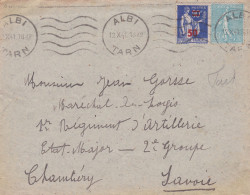 ALBI
TARN
ALBI
TARN
50
Monsieur Jean Gorsse
Maréchal-des-Logis
Régiment d'Artillerie
Etat-Major - 2e Groupe
Chambéry Savoie